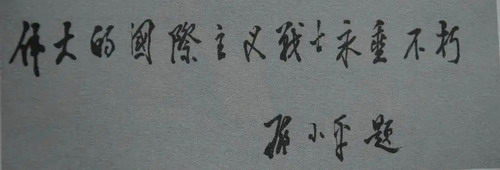 伟大的國際主义戰士永垂不朽
邓小平題